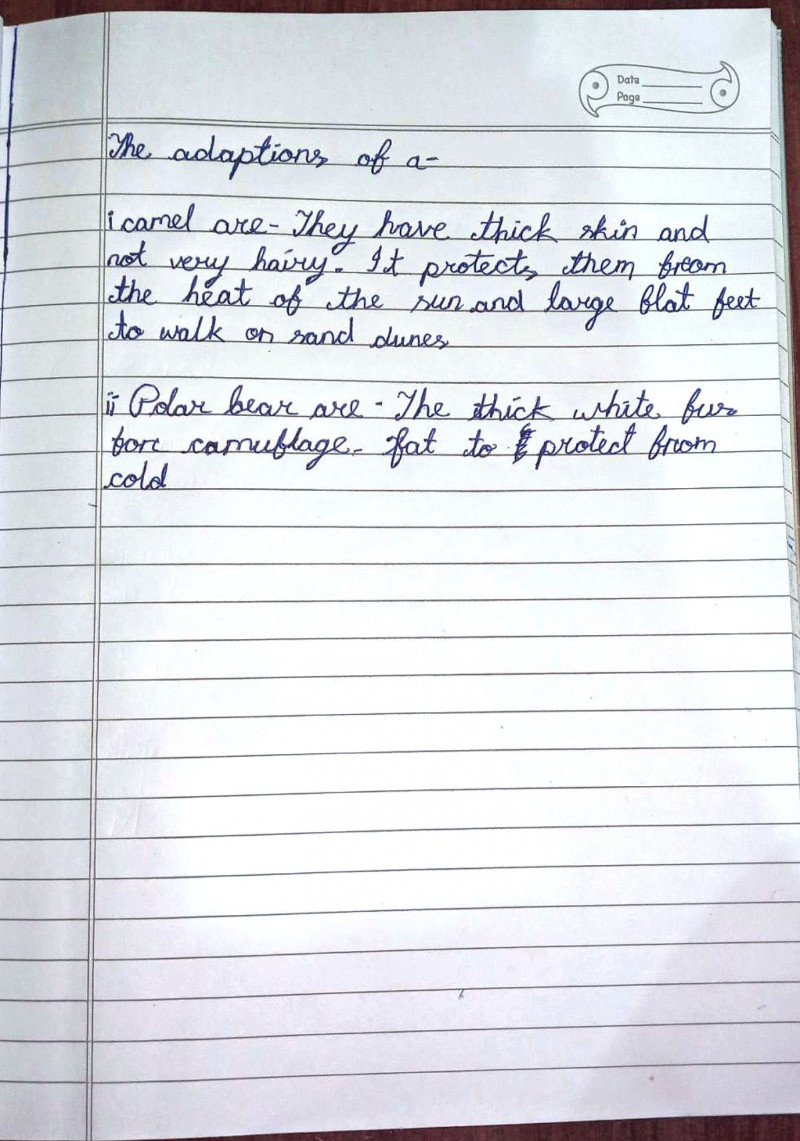 Date
Page
The adaptions of a-
i camel are- They have thick skin and
not very hairy. It protects them from
the heat of the sun and large flat feet
to walk on sand dunes
ii Polar bear are - The thick white fur
for camuflage. fat to protect from
cold